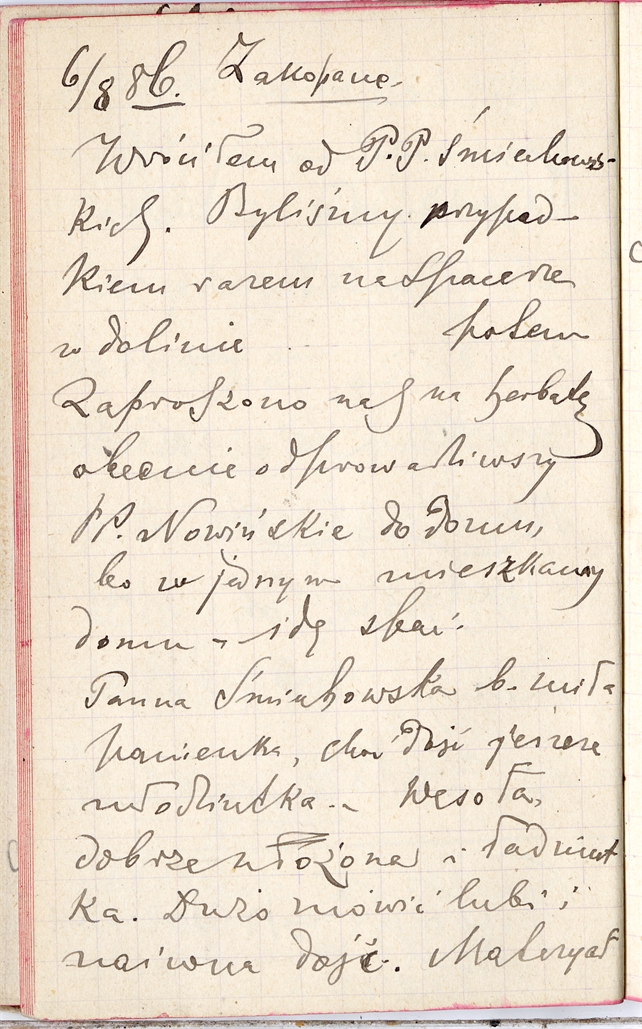 6/8 86. Zakopane.
Wróciłem od P.P. Śmiechows-
kich. Byliśmy przypad-
kiem razem na spacerze
w dolinie potem
Zaproszono nas na herbatę
obecnie odprowadziwszy
PP. Nowińskie do domu,
bo w jednym mieszkamy
domu – idę spać.
Panna Śmiechowska b. miła
panienka, choć dość jeszcze
młodziutka. – Wesoła,
dobrze ułożona i ładniut-
ka. Dużo mówić lubi i
naiwna dość. Materyał